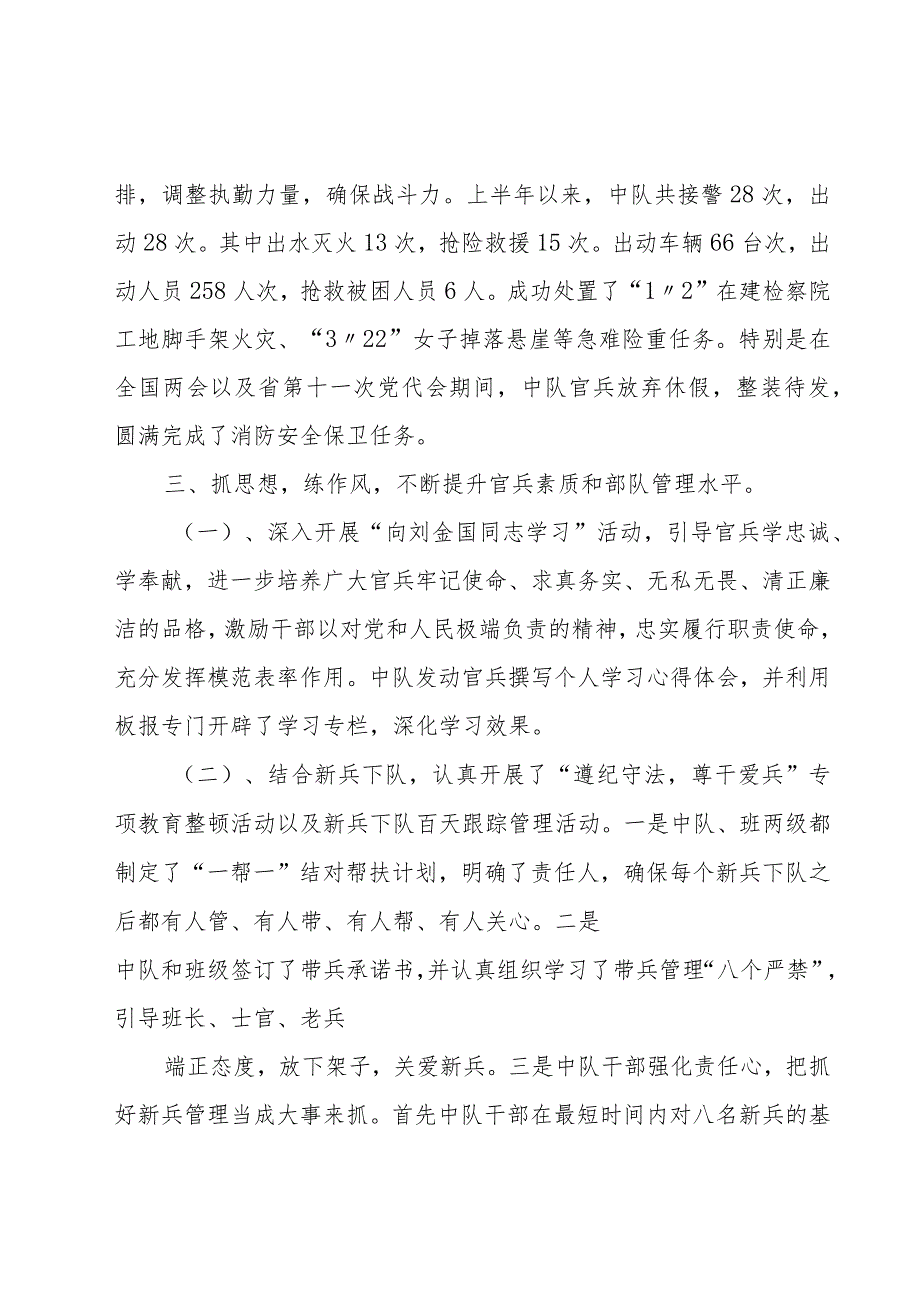 排，调整执勤力量，确保战斗力。上半年以来，中队共接警 28 次，出
动 28 次。其中出水灭火 13 次，抢险救援 15 次。出动车辆 66 台次，出
动人员 258 人次，抢救被困人员 6 人。成功处置了“1〃2”在建检察院
工地脚手架火灾、“3〃22”女子掉落悬崖等急难险重任务。特别是在
全国两会以及省第十一次党代会期间，中队官兵放弃休假，整装待发，
圆满完成了消防安全保卫任务。
三、抓思想，练作风，不断提升官兵素质和部队管理水平。
（一）、深入开展“向刘金国同志学习”活动，引导官兵学忠诚、
学奉献，进一步培养广大官兵牢记使命、求真务实、无私无畏、清正廉
洁的品格，激励干部以对党和人民极端负责的精神，忠实履行职责使命，
充分发挥模范表率作用。中队发动官兵撰写个人学习心得体会，并利用
板报专门开辟了学习专栏，深化学习效果。
（二）、结合新兵下队，认真开展了“遵纪守法，尊干爱兵”专
项教育整顿活动以及新兵下队百天跟踪管理活动。一是中队、班两级都
制定了“一帮一”结对帮扶计划，明确了责任人，确保每个新兵下队之
后都有人管、有人带、有人帮、有人关心。二是
中队和班级签订了带兵承诺书，并认真组织学习了带兵管理“八个严禁”，
引导班长、士官、老兵
端正态度，放下架子，关爱新兵。三是中队干部强化责任心，把抓
好新兵管理当成大事来抓。首先中队干部在最短时间内对八名新兵的基